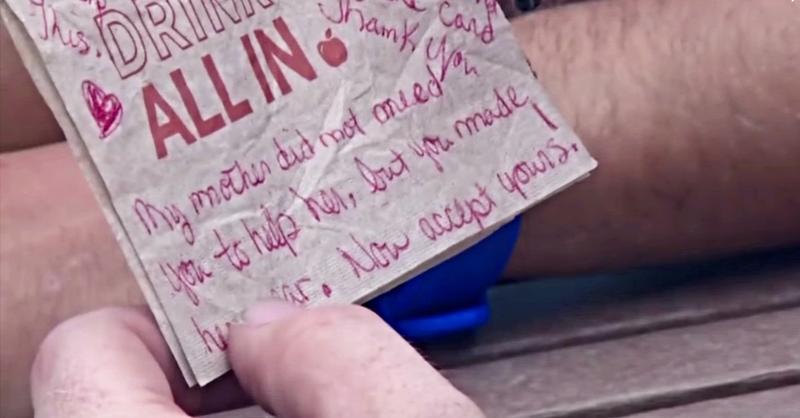 This.
Card
DRINK
Thank You
ALL IN
My mother did not need
you to help her, but you made
Now accept yours.